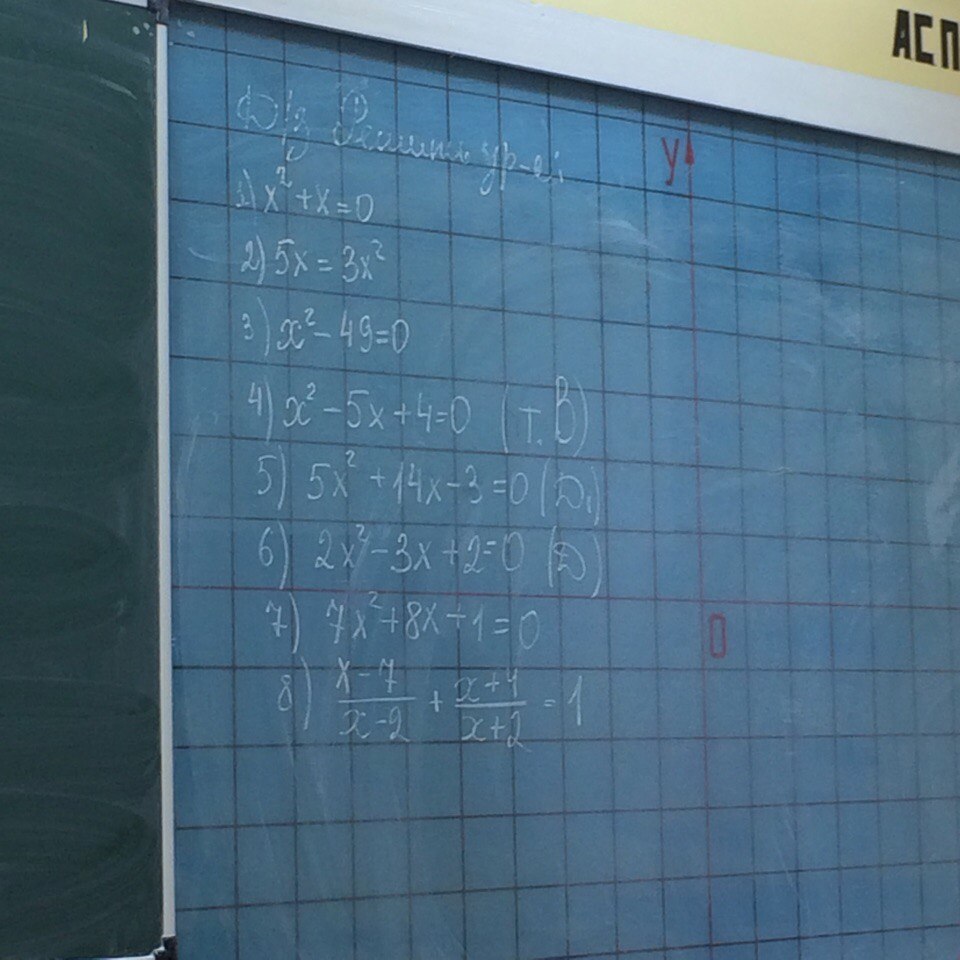 АСП
Д/з Решить ур-е:
1) x² + x = 0
2) 5x = 3x²
3) x² - 49 = 0
4) x² - 5x + 4 = 0 (т. В)
5) 5x² + 14x - 3 = 0 (D₁)
6) 2x² - 3x + 2 = 0 (D)
7) 7x² + 8x + 1 = 0
8) (x-7)/(x-2) + (x+4)/(x+2) = 1
y
0